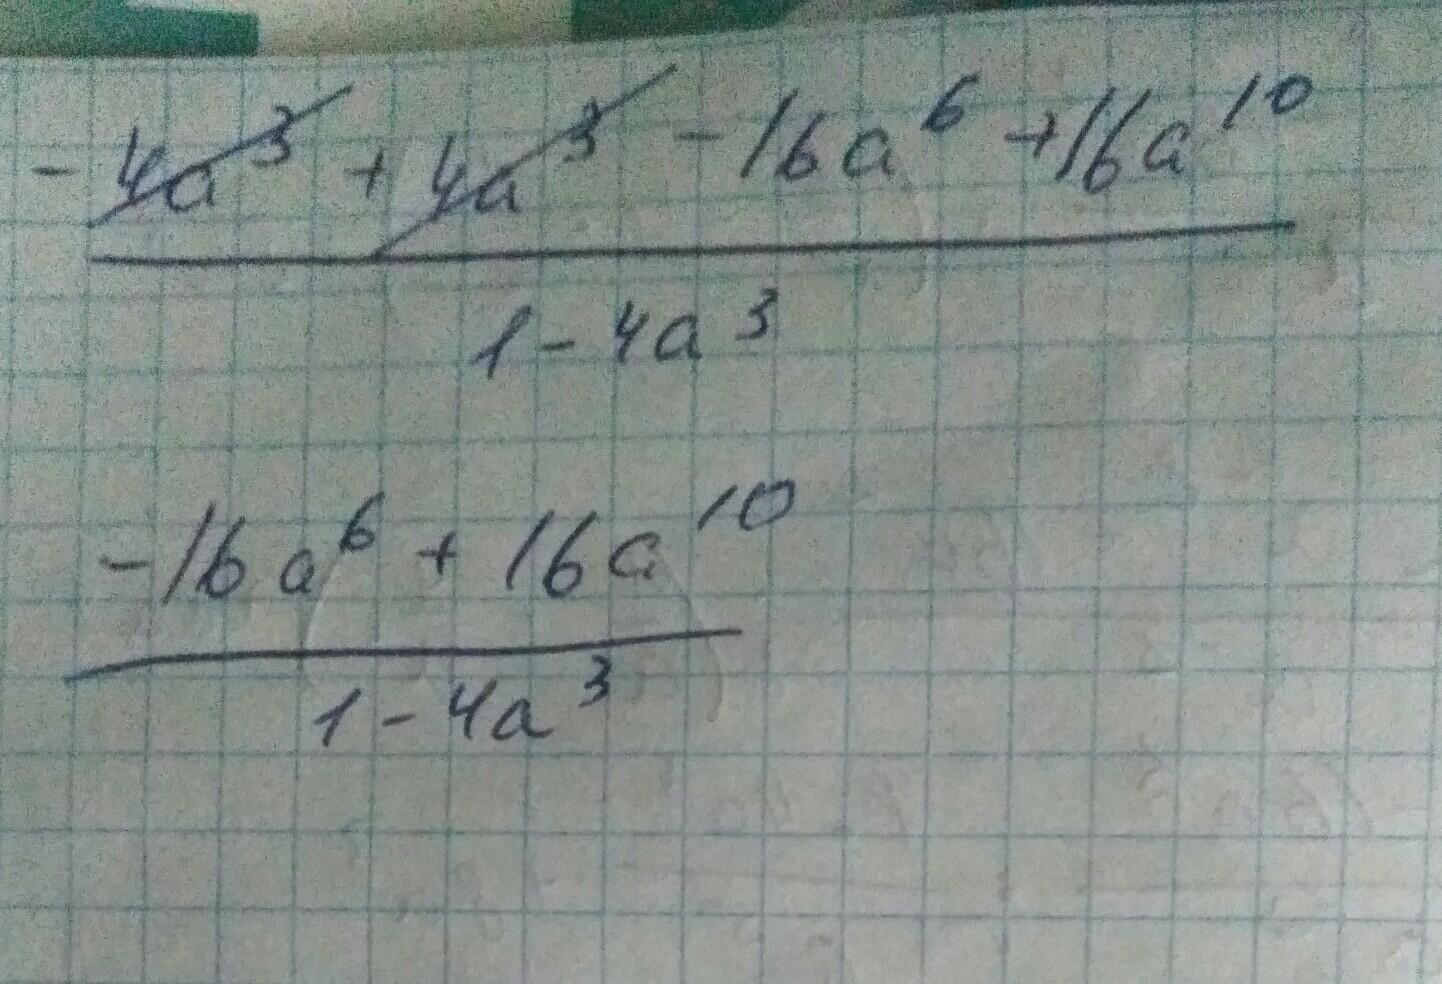 - 4a³ + 4a³ - 16a⁶ + 16a¹⁰
1 - 4a³
- 16a⁶ + 16a¹⁰
1 - 4a³